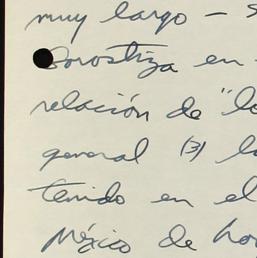 muy largo –
Gorostiza en
relación de "lo
general (3) l
tenido en el
México de hoy